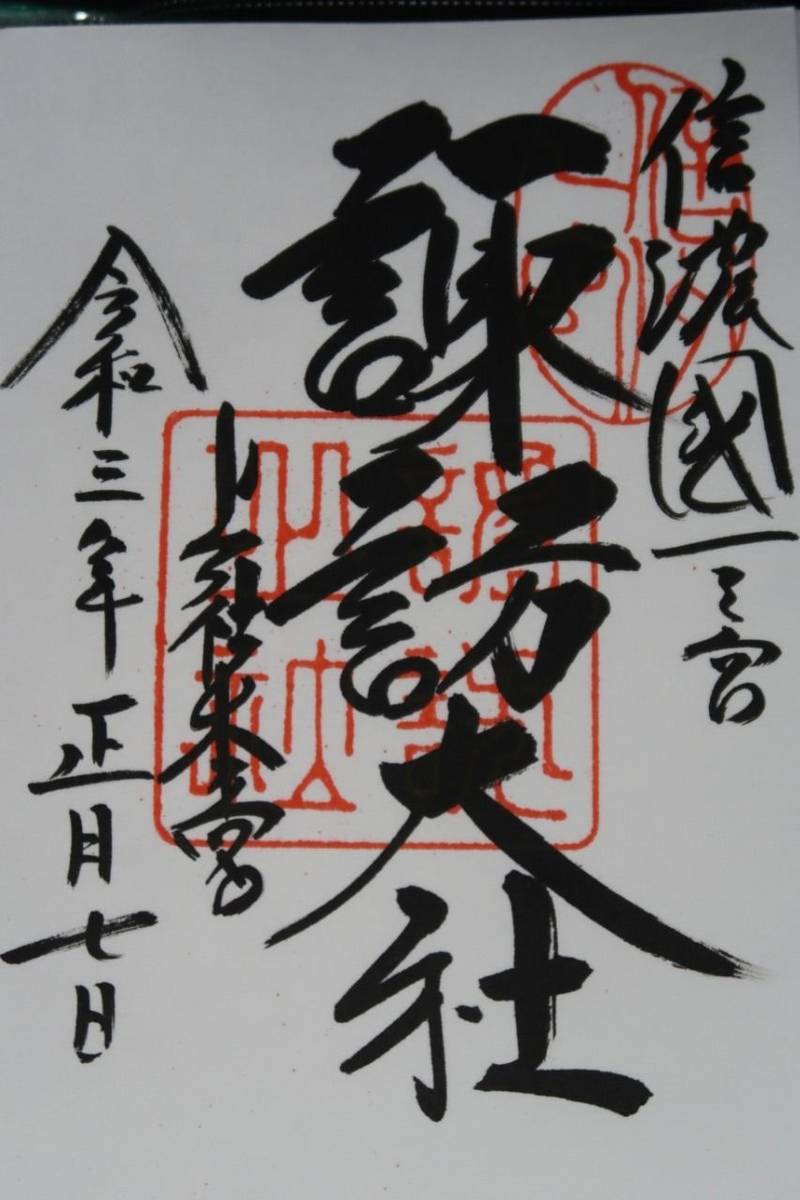 信濃國一之宮
諏訪大社
上社本宮
令和三年正月七日